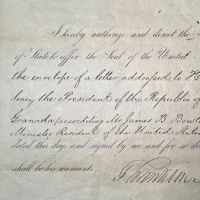 I hereby authorize and direct the
of State to affix the Seal of the United
the envelope of a letter addressed to H
lency the President of the Republic of
Granada, (accrediting Mr James B. Bowl
Minister Resident of the United States
dated this day, and signed by me and for so do
shall be his warrant.
Franklin